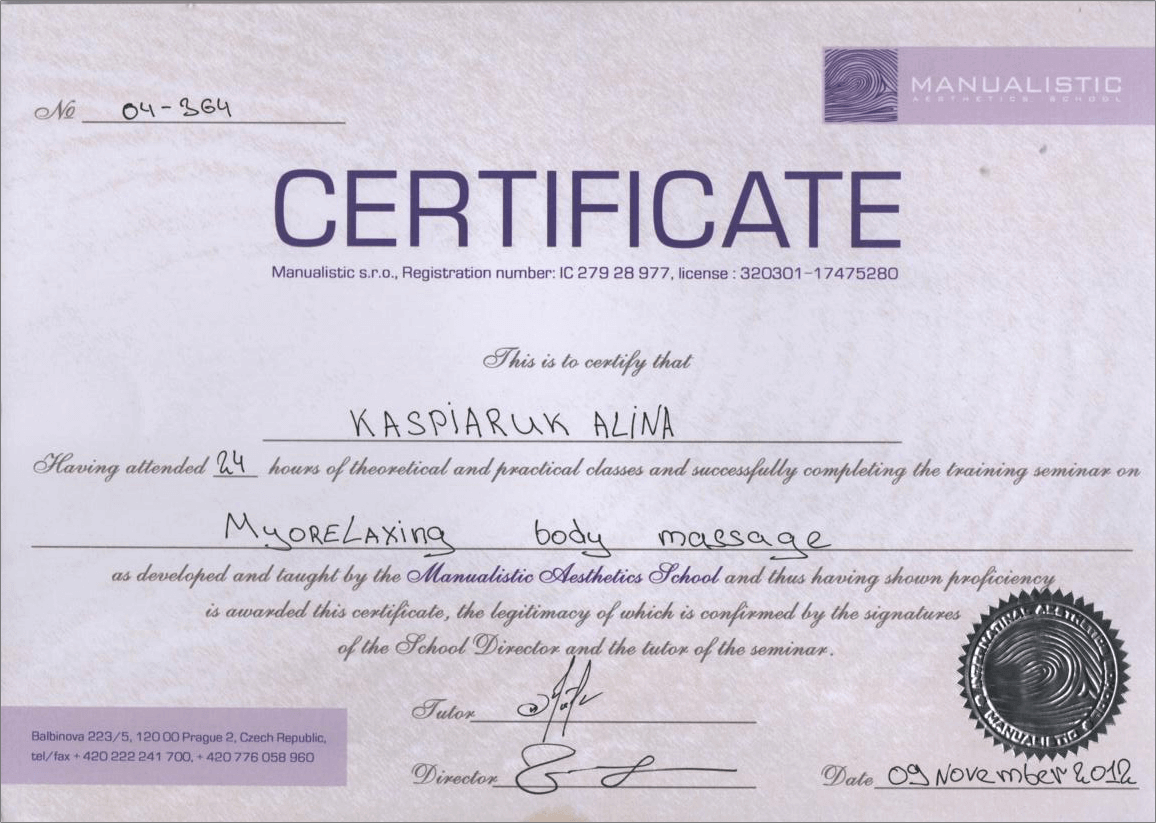 № 04-364
MANUALISTIC
AESTHETICS SCHOOL
CERTIFICATE
Manualistic s.r.o., Registration number: IC 279 28 977, license : 320301-17475280
This is to certify that
KASPIARUK ALINA
Having attended 24 hours of theoretical and practical classes and successfully completing the training seminar on
MyORELAxing body massage
as developed and taught by the Manualistic Aesthetics School and thus having shown proficiency
is awarded this certificate, the legitimacy of which is confirmed by the signatures
of the School Director and the tutor of the seminar.
Tutor
Balbinova 223/5, 120 00 Prague 2, Czech Republic,
tel/fax + 420 222 241 700, + 420 776 058 960
Director
Date 09 November 2012